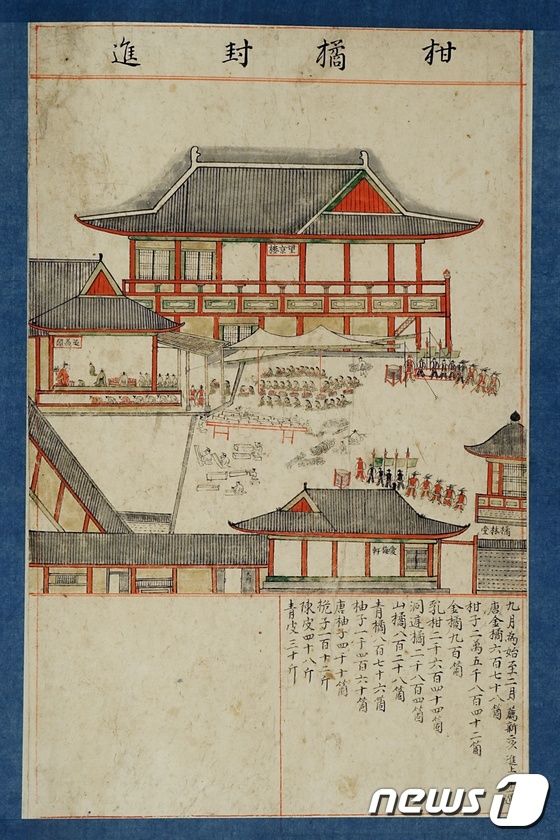 柑橘封進
望京樓
愛梅軒
橘林堂
九月為始至二月薦新二次 進上
唐金橘六百七十八箇
柑子二萬五千八百四十二箇
金橘九百箇
乳柑二千六百四十四箇
洞庭橘二千八百四箇
山橘八百二十八箇
青橘八百七十六箇
柚子一千四百六十箇
唐柚子四千十箇
梔子一百十二斤
陳皮四十八斤
青皮三十斤
news1